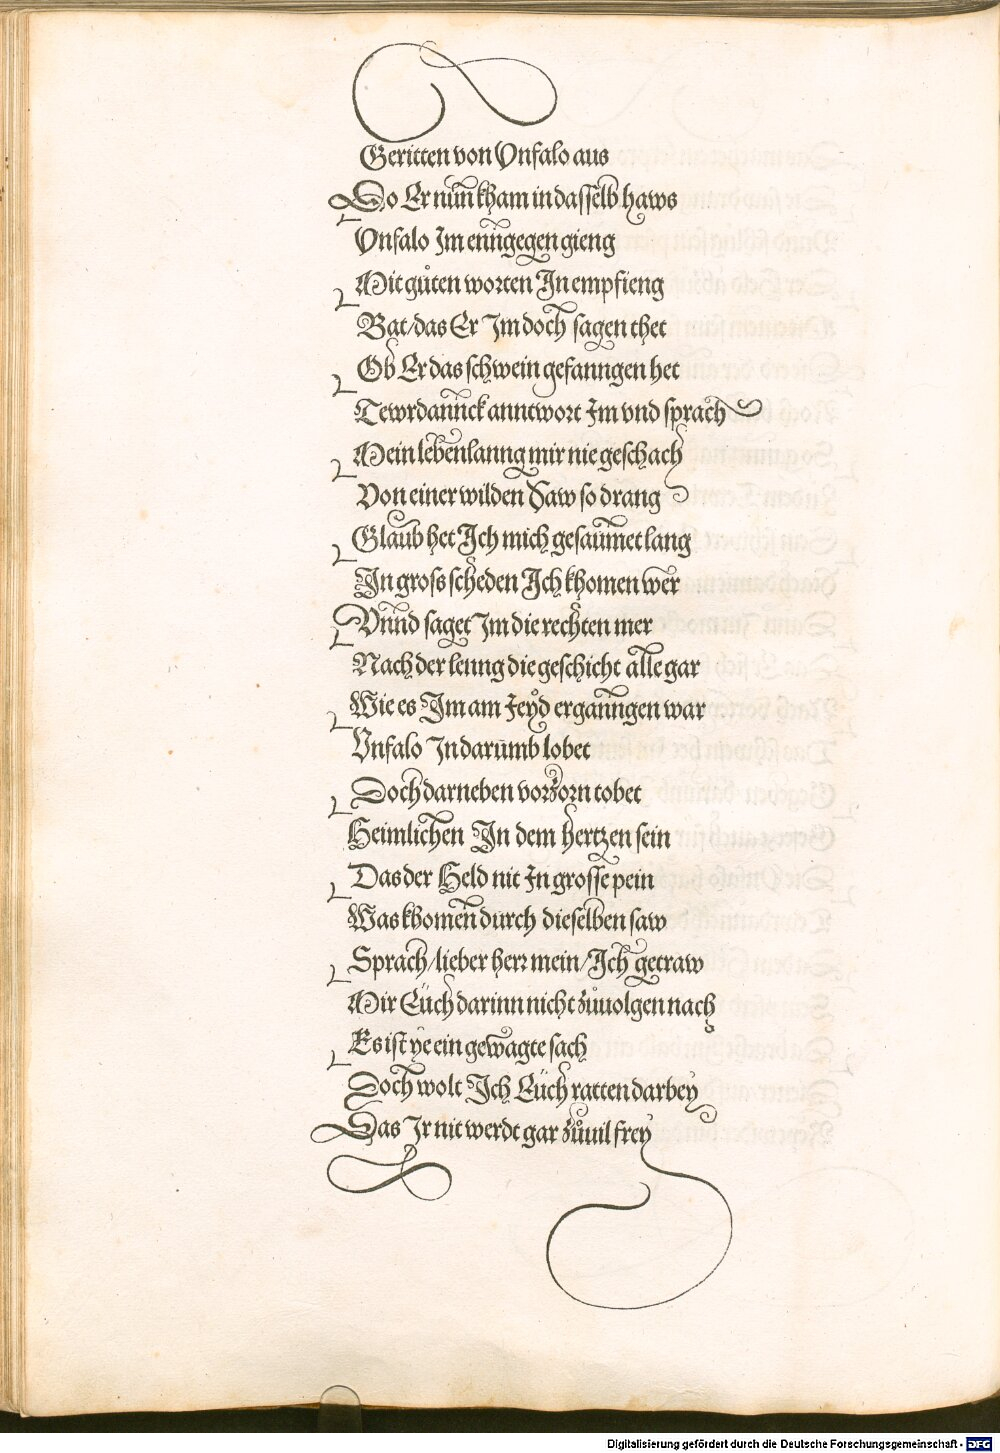 Geritten von Vnfalo aus
Do Er nůn kham in dasselb haws
Vnfalo Im enngegen gieng
Mit gůten worten In empfieng
Bat/das Er Im doch sagen thet
Ob Er das schwein gefanngen het
Tewrdannck anntwort Im vnd sprach
Mein lebenlanng mir nie geschach
Von einer wilden Saw so drang
Glaub het Ich mich gesaumet lang
In gross scheden Ich khomen wer
Vnnd saget Im die rechten mer
Nach der leung die geschicht alle gar
Wie es Im am Jeyd erganngen war
Vnfalo In darumb lobet
Doch darneben vor zorn tobet
Heimlichen In dem hertzen sein
Das der Held nit In grosse pein
Was khomen durch dieselben saw
Sprach/lieber herr mein/Ich getraw
Mir Eüch darinn nicht zůuolgen nach
Es ist ye ein gewagte sach
Doch wolt Ich Eüch ratten darbey
Das Ir nit werdt gar zůuil frey
Digitalisierung gefördert durch die Deutsche Forschungsgemeinschaft - DFG